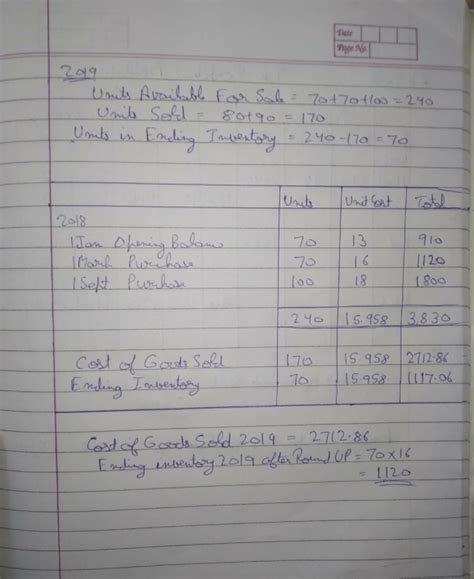 Date
Page No.
2019
Units Available For Sale = 70+70+100 = 240
Units Sold = 80+90 = 170
Units in Ending Inventory = 240-170 = 70
Units Unit Cost Total
2018
1 Jan Opening Balance 70 13 910
1 March Purchase 70 16 1120
1 Sept Purchase 100 18 1800
240 15.958 3,830
Cost of Goods Sold 170 15.958 2712.86
Ending Inventory 70 15.958 1117.06
Cost of Goods Sold 2019 = 2712.86
Ending inventory 2019 after Round UP = 70x16
= 1120